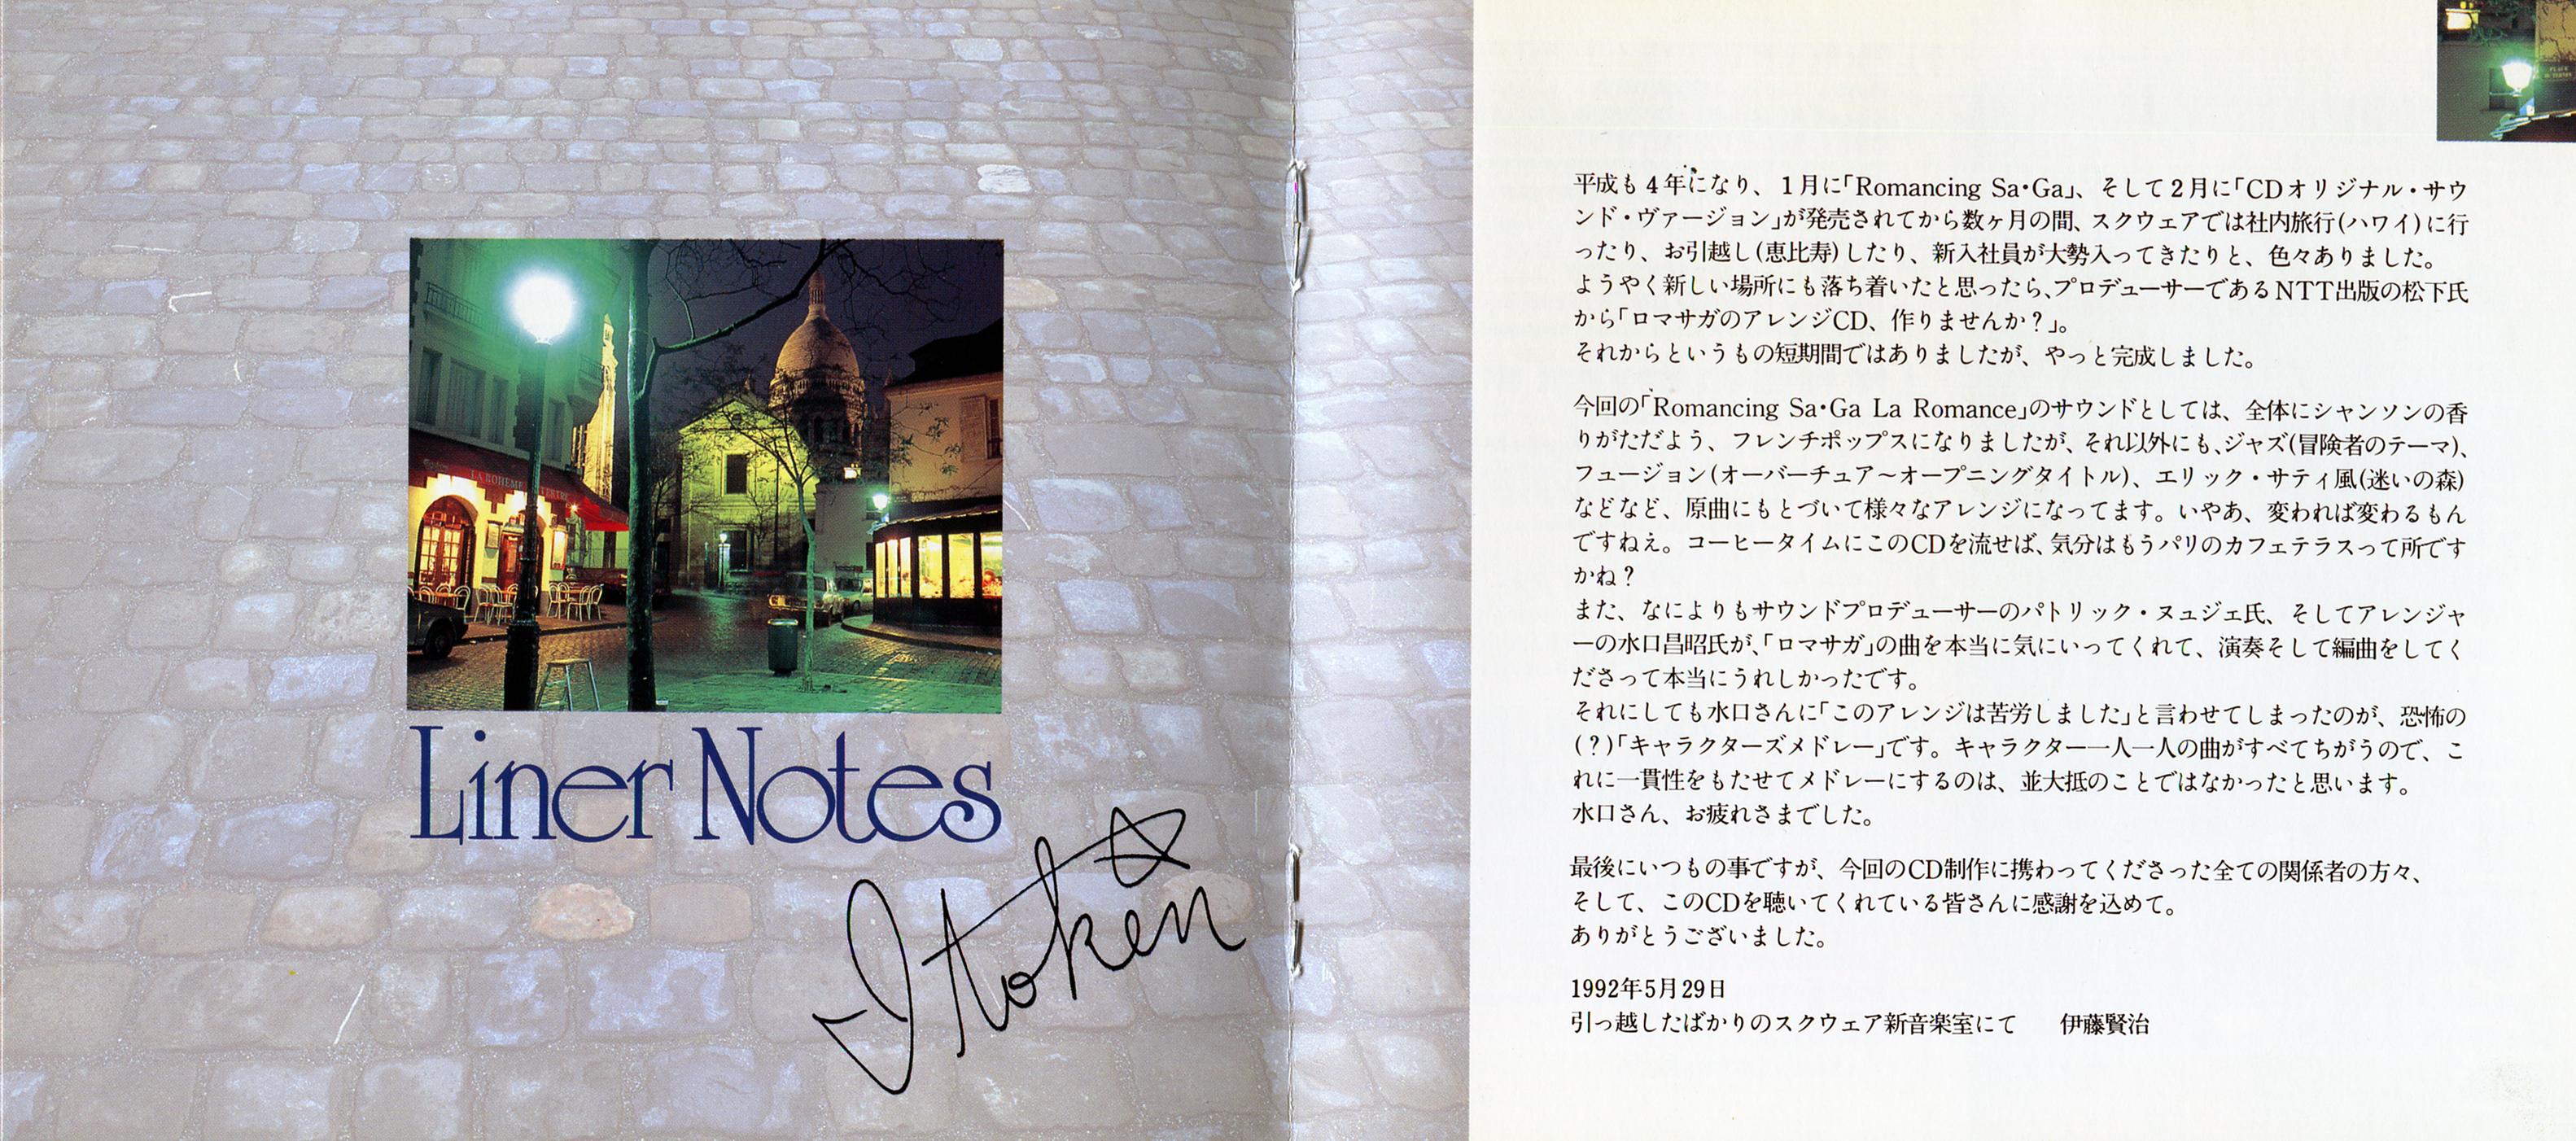 LA BOHEME
Liner Notes
Itoken
平成も4年になり、1月に「Romancing Sa・Ga」、そして2月に「CDオリジナル・サウ
ンド・ヴァージョン」が発売されてから数ヶ月の間、スクウェアでは社内旅行(ハワイ)に行
ったり、お引越し(恵比寿)したり、新入社員が大勢入ってきたりと、色々ありました。
ようやく新しい場所にも落ち着いたと思ったら、プロデューサーであるNTT出版の松下氏
から「ロマサガのアレンジCD、作りませんか?」。
それからというもの短期間ではありましたが、やっと完成しました。
今回の「Romancing Sa・Ga La Romance」のサウンドとしては、全体にシャンソンの香
りがただよう、フレンチポップスになりましたが、それ以外にも、ジャズ(冒険者のテーマ)、
フュージョン(オーバーチュア〜オープニングタイトル)、エリック・サティ風(迷いの森)
などなど、原曲にもとづいて様々なアレンジになってます。いやあ、変われば変わるもん
ですねえ。コーヒータイムにこのCDを流せば、気分はもうパリのカフェテラスって所です
かね?
また、なによりもサウンドプロデューサーのパトリック・ヌュジェ氏、そしてアレンジャ
ーの水口昌昭氏が、「ロマサガ」の曲を本当に気にいってくれて、演奏そして編曲をしてく
ださって本当にうれしかったです。
それにしても水口さんに「このアレンジは苦労しました」と言わせてしまったのが、恐怖の
(?)「キャラクターズメドレー」です。キャラクター一人一人の曲がすべてちがうので、こ
れに一貫性をもたせてメドレーにするのは、並大抵のことではなかったと思います。
水口さん、お疲れさまでした。
最後にいつもの事ですが、今回のCD制作に携わってくださった全ての関係者の方々、
そして、このCDを聴いてくれている皆さんに感謝を込めて。
ありがとうございました。
1992年5月29日
引っ越したばかりのスクウェア新音楽室にて 伊藤賢治